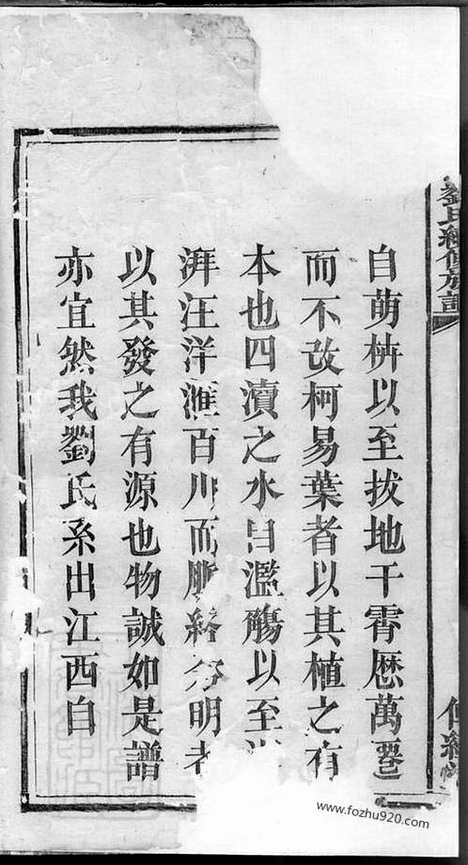 劉氏續修族譜
自萌枿以至拔地干霄歷萬䙴
而不改柯易葉者以其植之有
本也四瀆之水自濫觴以至
湃汪洋滙百川而脈絡分明者
以其發之有源也物誠如是譜
亦宜然我劉氏系出江西自
www.fozhu920.com